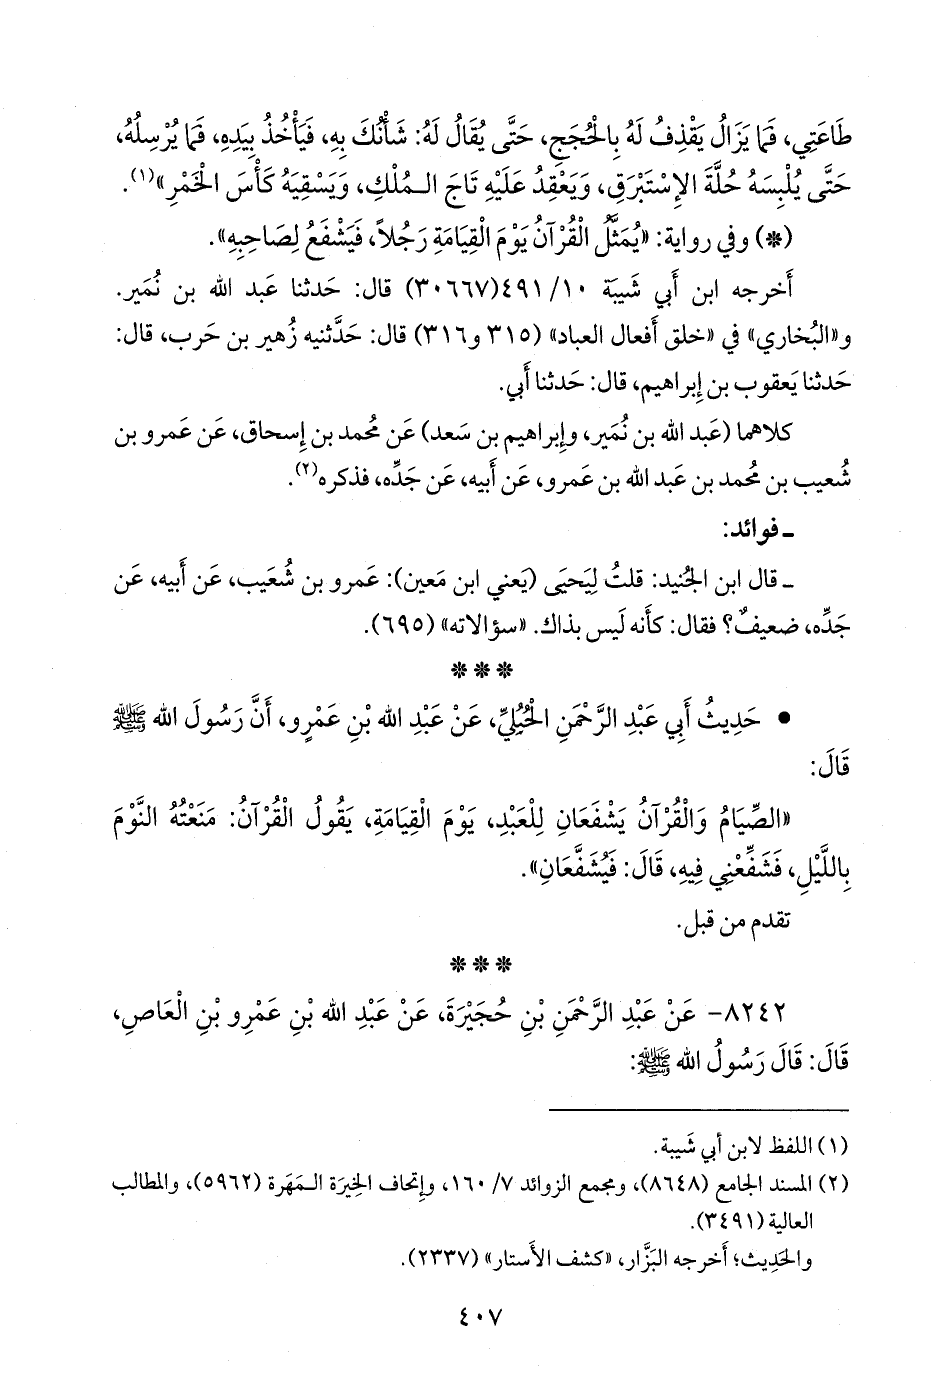 طَاعَتِي، فَمَا يَزَالُ يَقْذِفُ لَهُ بِالْحُجَجِ، حَتَّى يُقَالُ لَهُ: شَأْنُكَ بِهِ، فَيَأْخُذُ بِيَدِهِ، فَمَا يُرْسِلُهُ،
حَتَّى يُلْبِسَهُ حُلَّةَ الإِسْتَبْرَقِ، وَيَعْقِدُ عَلَيْهِ تَاجَ الـمُلْكِ، وَيَسْقِيَهُ كَأْسَ الْخَمْرِ»(١).
(*) وفي رواية: «يُمَثَّلُ الْقُرْآنُ يَوْمَ الْقِيَامَةِ رَجُلاً، فَيَشْفَعُ لِصَاحِبِهِ».
أَخرجه ابن أَبي شَيبَة ١٠/ ٤٩١(٣٠٦٦٧) قال: حَدثنا عَبد الله بن نُمَير.
و«البُخاري» في «خلق أَفعال العباد» (٣١٥ و٣١٦) قال: حَدَّثنيه زُهير بن حَرب، قال:
حَدثنا يَعقوب بن إِبراهيم، قال: حَدثنا أَبي.
كلاهما (عَبد الله بن نُمَير، وإِبراهيم بن سَعد) عَن مُحمد بن إِسحاق، عَن عَمرو بن
شُعيب بن مُحمد بن عَبد الله بن عَمرو، عَن أَبيه، عَن جَدِّه، فذكره(٢).
ـ فوائد:
ـ قال ابن الجُنيد: قلتُ لِيَحيَى (يَعني ابن مَعين): عَمرو بن شُعَيب، عَن أَبيه، عَن
جَدِّه، ضعيفٌ؟ فقال: كأَنه لَيس بذاك. «سؤالاته» (٦٩٥).
* * *
• حَدِيثُ أَبِي عَبْدِ الرَّحْمَنِ الْحُبُلِيِّ، عَنْ عَبْدِ الله بْنِ عَمْرٍو، أَنَّ رَسُولَ الله ﷺ
قَالَ:
«الصِّيَامُ وَالْقُرْآنُ يَشْفَعَانِ لِلْعَبْدِ، يَوْمَ الْقِيَامَةِ، يَقُولُ الْقُرْآنُ: مَنَعْتُهُ النَّوْمَ
بِاللَّيْلِ، فَشَفِّعْنِي فِيهِ، قَالَ: فَيُشَفَّعَانِ».
تقدم من قبل.
* * *
٨٢٤٢- عَنْ عَبْدِ الرَّحْمَنِ بْنِ حُجَيْرَةَ، عَنْ عَبْدِ الله بْنِ عَمْرِو بْنِ الْعَاصِ،
قَالَ: قَالَ رَسُولُ الله ﷺ:
(١) اللفظ لابن أبي شَيبة.
(٢) المسند الجامع (٨٦٤٨)، ومجمع الزوائد ٧/ ١٦٠، وإتحاف الخِيرَة الـمَهَرة (٥٩٦٢)، والمطالب
العالية (٣٤٩١).
والحَدِيث؛ أَخرجه البَزَّار، «كشف الأَستار» (٢٣٣٧).
٤٠٧